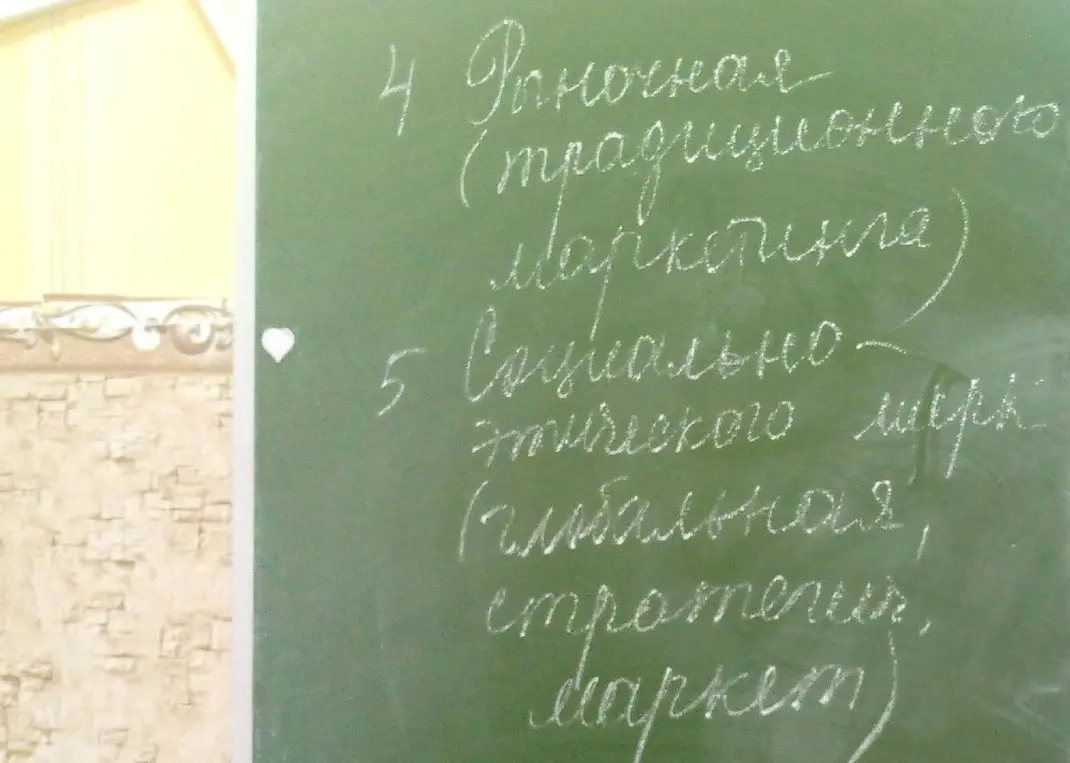 4 Рыночная
(традиционного
маркетинга)
5 Социально-
этического марк
(глобальная,
стратегич,
маркет)